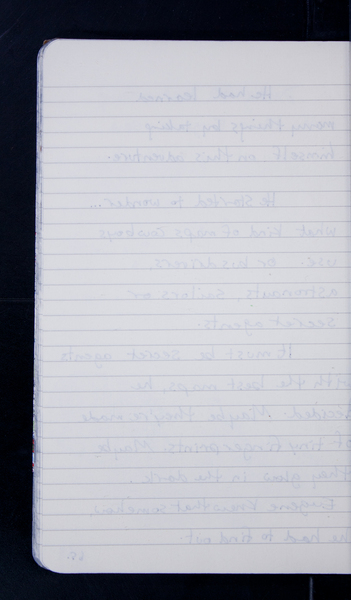 He had learned
many things by taking
himself on this adventure.
He started to wonder...
what kind of maps cowboys
use. or his drivers.
astronauts, sailors or
secret agents.
It must be secret agents
with the best maps, he
decided. Maybe they're made
of tiny fingerprints. Maybe
they glow in the dark.
Eugene knew that somehow,
he had to find out.